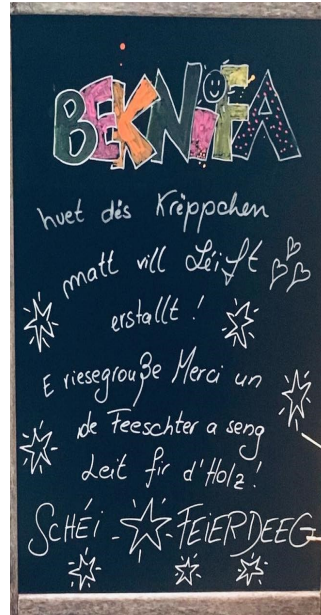 BEKNIFA
huet dës Krëppchen
matt vill Léift
erstallt !
E riesegrouße Merci un
de Feeschter a seng
Leit fir d'Holz !
SCHÉI - FEIERDEEG